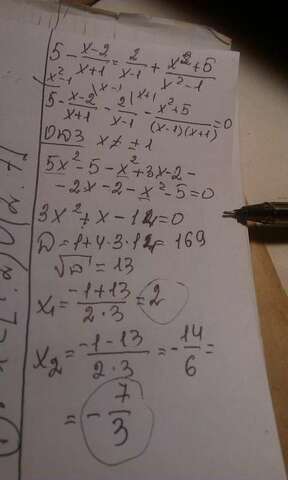 5 - x-2/x+1 = 2/x-1 + x²+5/x²-1
x²-1 \x-1 \x+1
5 - x-2/x+1 - 2/x-1 - x²+5/(x-1)(x+1) = 0
ОДЗ x ≠ ±1
5x²-5-x²+3x-2-
-2x-2-x²-5=0
3x²+x-14=0
D=1+4·3·14=169
√D=13
x₁= -1+13/2·3 = 2
x₂= -1-13/2·3 = -14/6 =
= -7/3